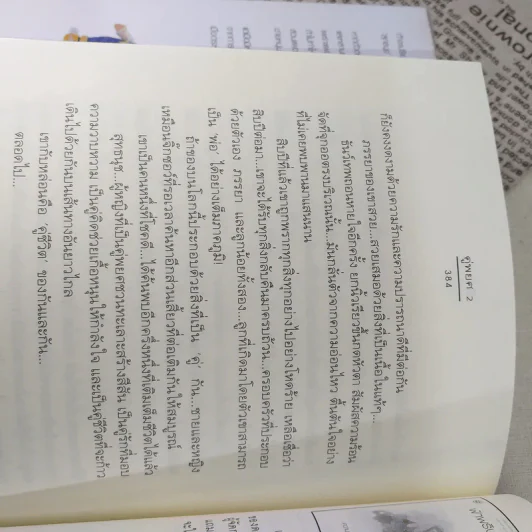 คู่พยศ 2
384
ก็ยังคงงดงามด้วยความรักและความปรารถนาดีที่มีต่อกัน
ภรรยาของเขาสวย...สวยเสมอด้วยสิ่งที่เป็นเนื้อในแท้ๆ...
ธันว์เทพถอนหายใจอีกครั้ง ยกนิ้วเรียวขึ้นกดหัวตา สัมผัสความร้อน
จัดที่จุกออตรงบริเวณนั้น...มันกลั่นตัวจากความอ่อนไหว ตื้นตันใจอย่าง
ที่ไม่เคยพบพานมาแสนนาน
สิบปีที่แล้วเขาถูกพรากทุกสิ่งทุกอย่างไปอย่างโหดร้าย เหลือเชื่อว่า
สิบปีต่อมา...เขาจะได้รับทุกสิ่งกลับคืนมาครบถ้วน...ครอบครัวที่ประกอบ
ด้วยตัวเอง ภรรยา และลูกน้อยทั้งสอง...ลูกที่เกิดมาโดยตัวเขาสามารถ
เป็น 'พ่อ' ได้อย่างเต็มภาคภูมิ!
ถ้าของบนโลกนี้ประกอบด้วยสิ่งที่เป็น 'คู่' กัน...ชายและหญิง
เหมือนจิ๊กซอว์ที่รอเวลาค้นหาอีกส่วนเสี้ยวที่ต่อเติมกันให้สมบูรณ์
เขาเป็นคนหนึ่งที่โชคดี...ได้ค้นพบอีกครึ่งหนึ่งที่เติมเต็มชีวิตได้แล้ว
สุทธนุช...ผู้หญิงที่เป็นคู่พยศชวนทะเลาะสร้างสีสัน เป็นคู่รักที่มอบ
ความวาบหวาม เป็นคู่คิดช่วยเกื้อหนุนให้กำลังใจ และเป็นคู่ชีวิตที่จะก้าว
เดินไปด้วยกันบนเส้นทางอันยาวไกล
เขากับหล่อนคือ 'คู่ชีวิต' ของกันและกัน...
ตลอดไป...